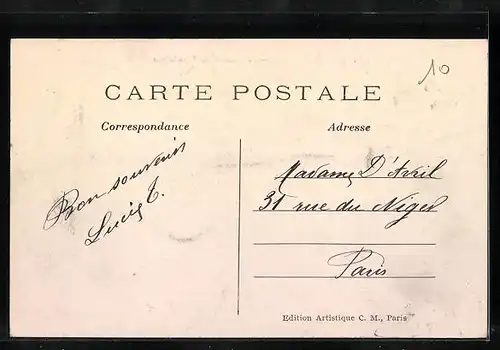 10
CARTE POSTALE
Correspondance
Adresse
Bon souvenir
Lucie T.
Madame D'Avril
31 rue du Niger
Paris
Edition Artistique C. M., Paris